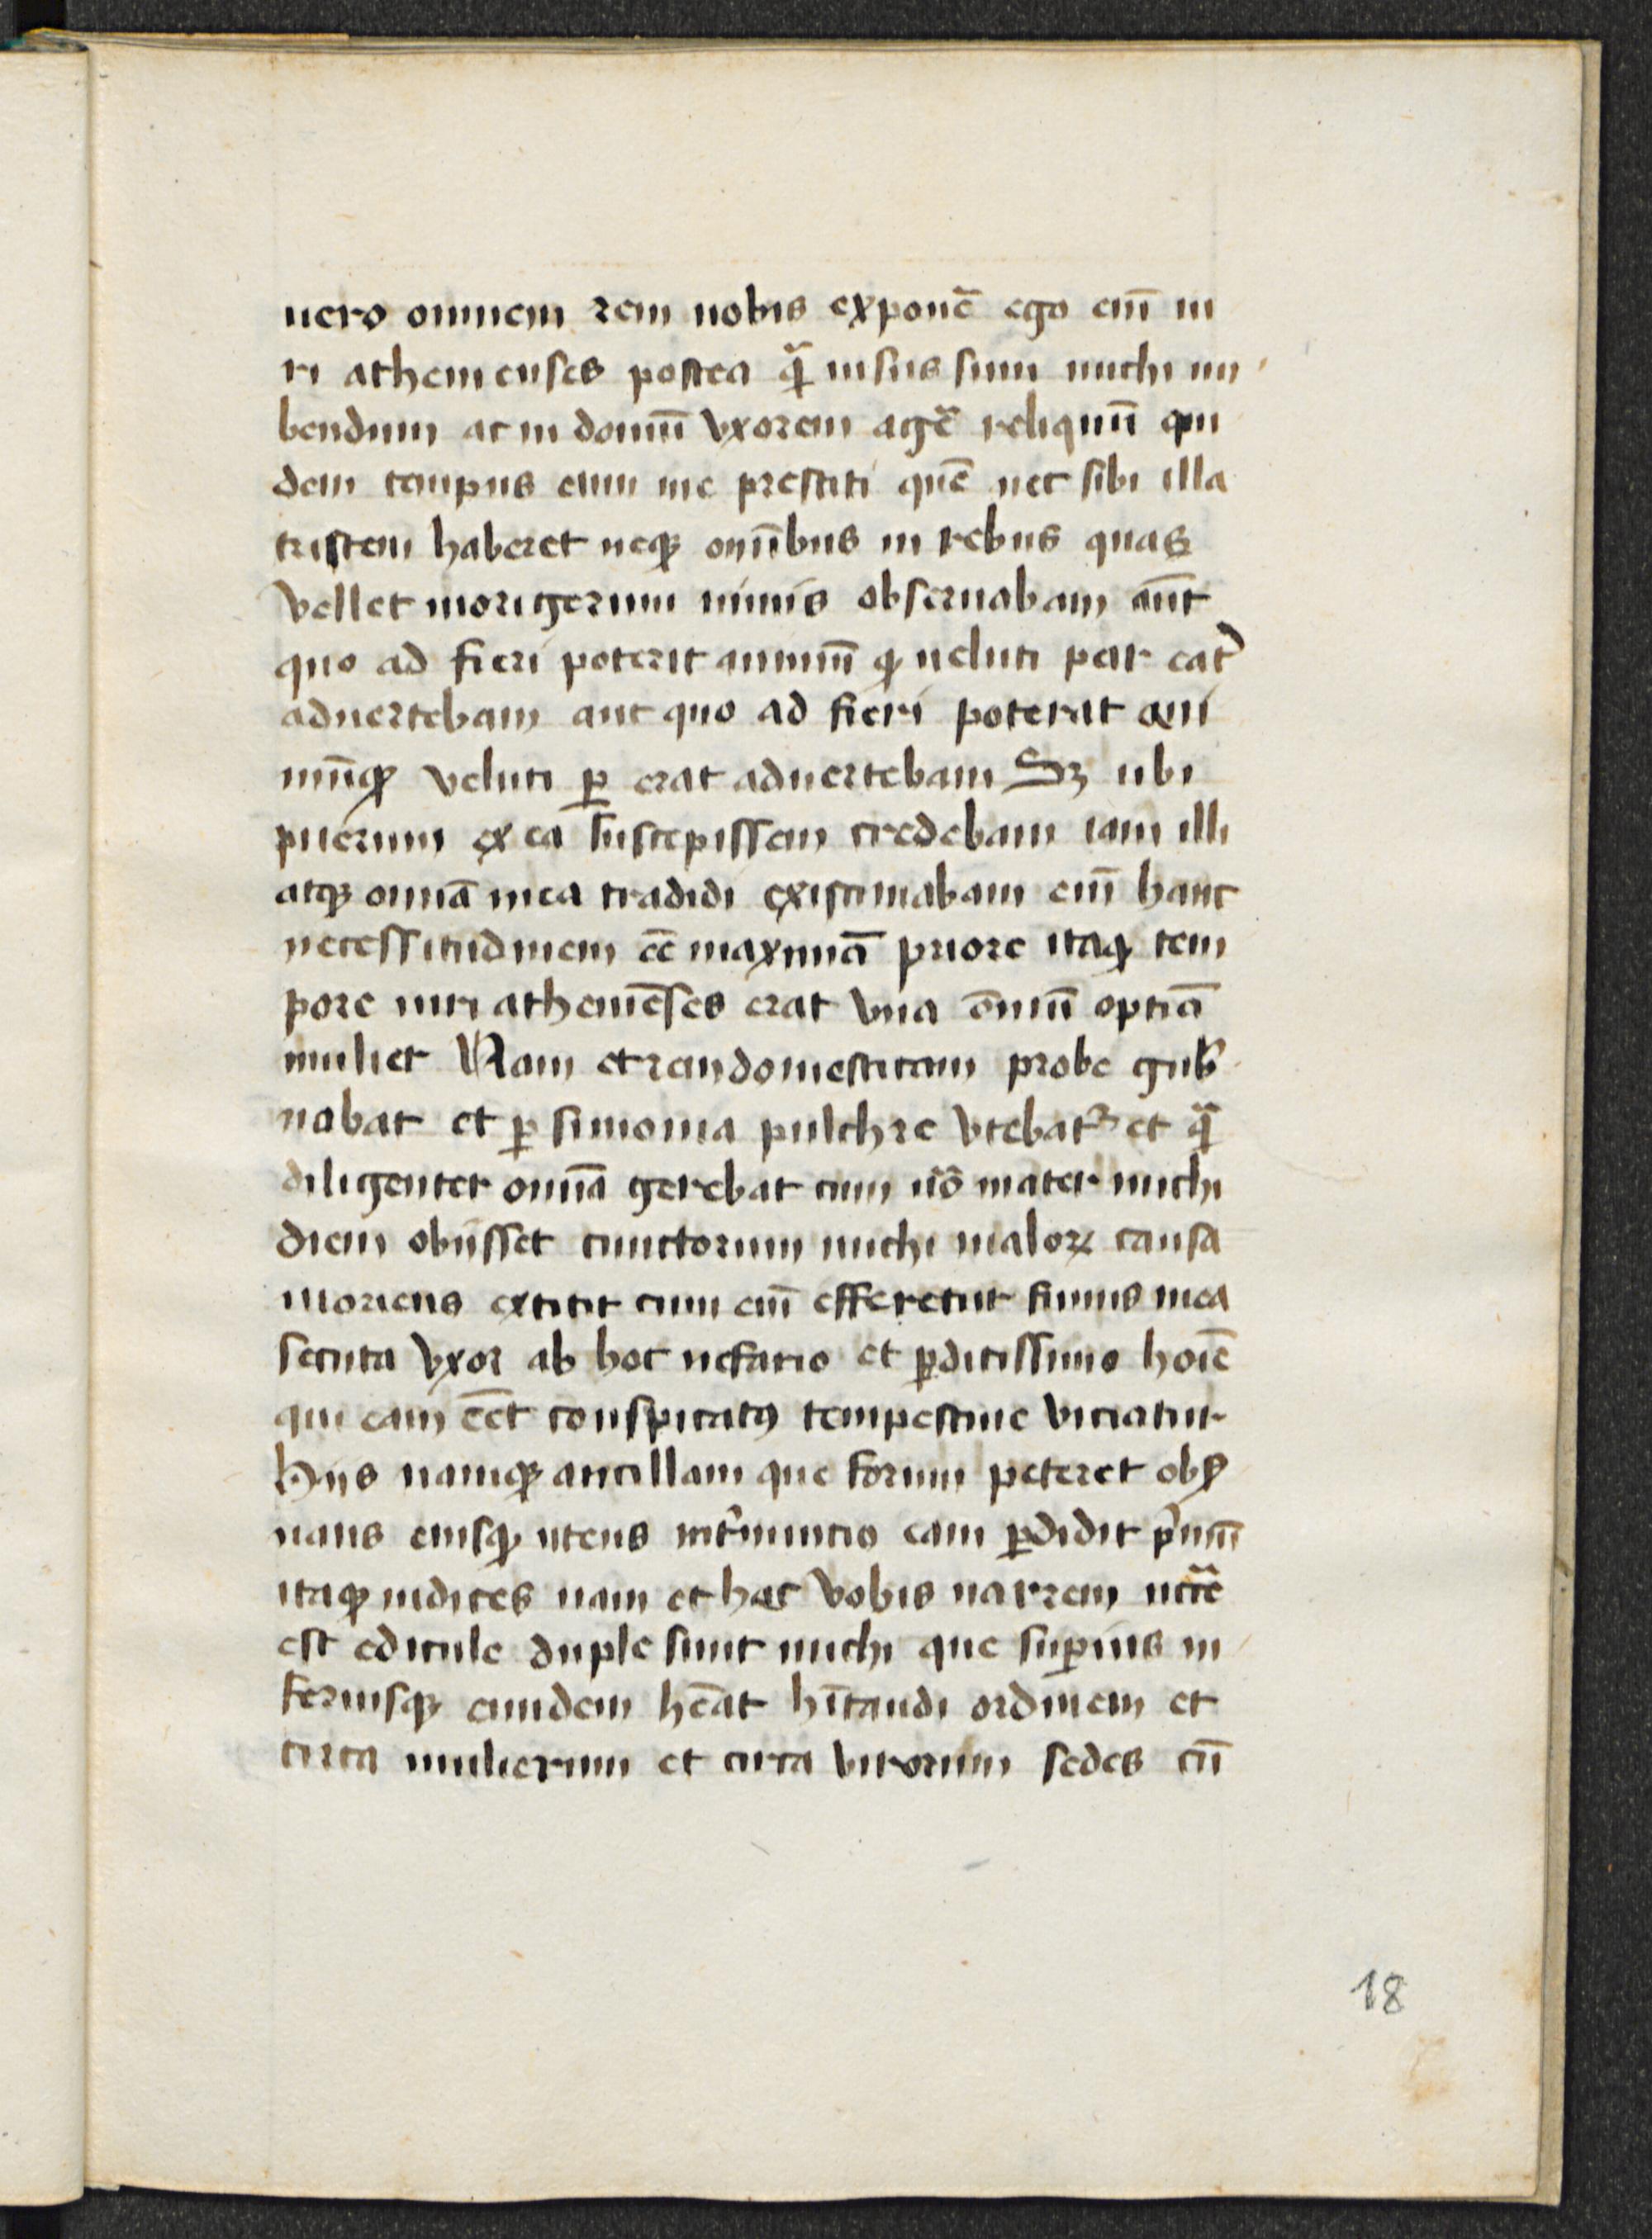 uero omnem rem nobis exponē ego eni͞ ui
ri athenienses postea q̄ uisus sum michi nu
bendum ac in domū vxorem agē reliquū qui
dem tempus eum me prestiti quē nec sibi illa
tristem haberet neqꝫ om̄ibus in rebus quas
vellet morigerum nimis obseruabam aūt
quo ad fieri poterit animū qꝫ ueluti par eat
aduertebam aut quo ad fieri poterat ani
mūqꝫ veluti ꝑ erat aduertebam Sꝫ ubi
puerum ex ea suscepissem credebam iam illi
atqꝫ omīa mea tradidi existimabam eni͞ hanc
necessitudinem ee͞ maximā priore itaqꝫ tem
pore uiri atheniēses erat vna om̄iū optīa
mulier Nam et rem domesticam probe gub̄
nabat et ꝑsimonia pulchre vtebat᷑ et q̄
diligenter omīa gerebat cum uō mater michi
diem obiisset cunctorum michi maloꝝ causa
moriens extitit cum eni͞ efferetur funus mea
secuta vxor ab hoc nefario et ꝑditissimo hoīe
qui eam eēt conspicatꝰ tempestiue viciatur
Hijs namqꝫ ancillam que forum peteret obẜ
uans eiusqꝫ utens int̄nuncio eam ꝑdidit pͥmū
itaqꝫ iudices nam et hac vobis narrem nccē
est edicule duple sunt michi que suꝑius in
feriusqꝫ eundem hēāt hītandi ordinem et
circa mulierum et circa virorum sedes cū
18